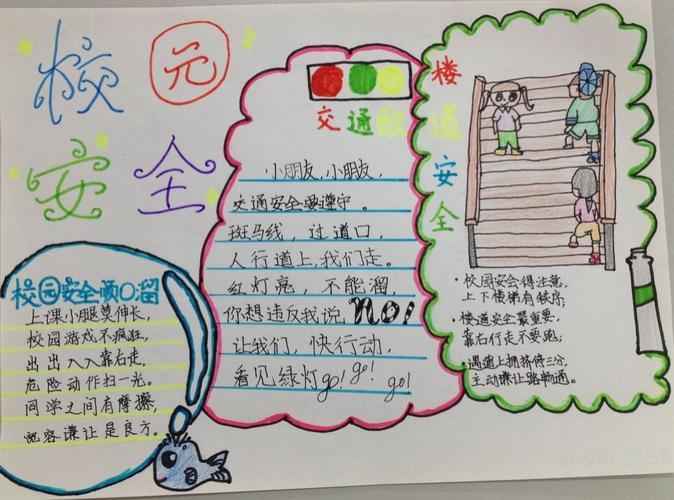 校园
安全
校园安全顺口溜
上课小腿莫伸长,
校园游戏不疯狂,
出出入入靠右走,
危险动作扫一光。
同学之间有摩擦,
容谦让是良方。
交通
小朋友,小朋友,
交通安全要遵守。
斑马线,过道口,
人行道上,我们走。
红灯亮,不能溜,
你想违反我说,NO!
让我们,快行动,
看见绿灯go! go! go!
楼道安全
·校园安会得注意,
上下楼梯有秩序;
·楼道安全最重要,
靠右行走不要跑;
·遇道上拥挤得三分,
主动谦让路畅通。